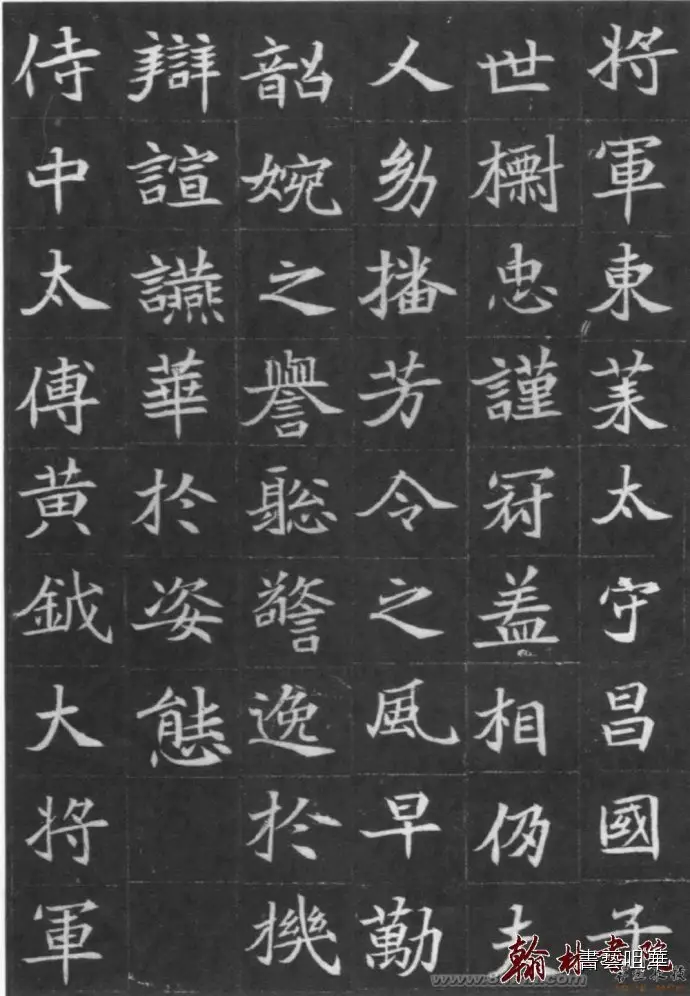 将軍東莱太守昌國子
世樹忠謹冠盖相仍夫
人幼播芳令之風早勤
韶婉之譽聡警逸於機
辯諠讌華於姿態
侍中太傅黄鉞大将軍
翰林書院
書藝咀華